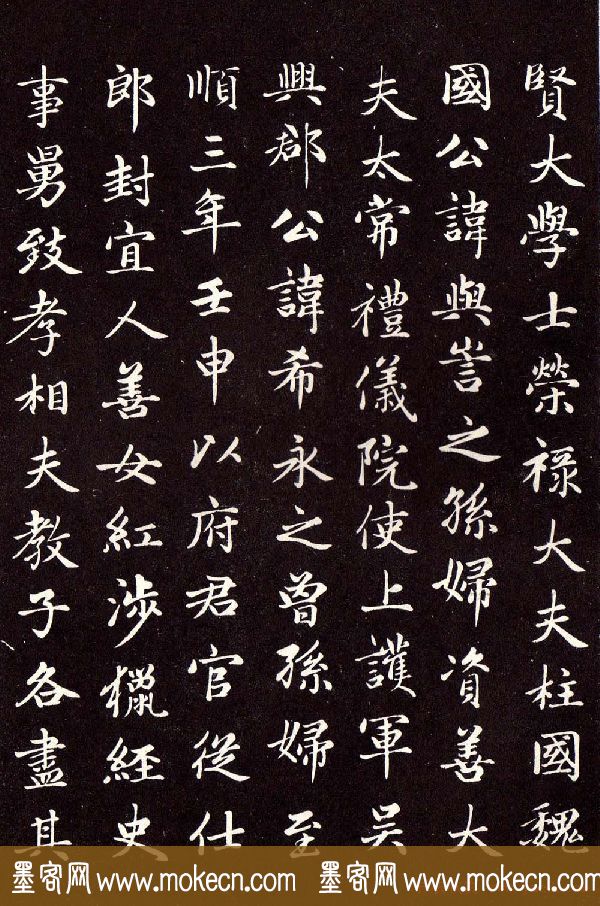 賢大學士榮祿大夫柱國魏
國公諱與訔之孫婦資善大
夫太常禮儀院使上護軍吳
興郡公諱希永之曾孫婦至
順三年壬申以府君官從仕
郎封宜人善女紅涉獵經史
事舅致孝相夫教子各盡其
墨客网 www.mokecn.com 墨客网 www.mokecn.com